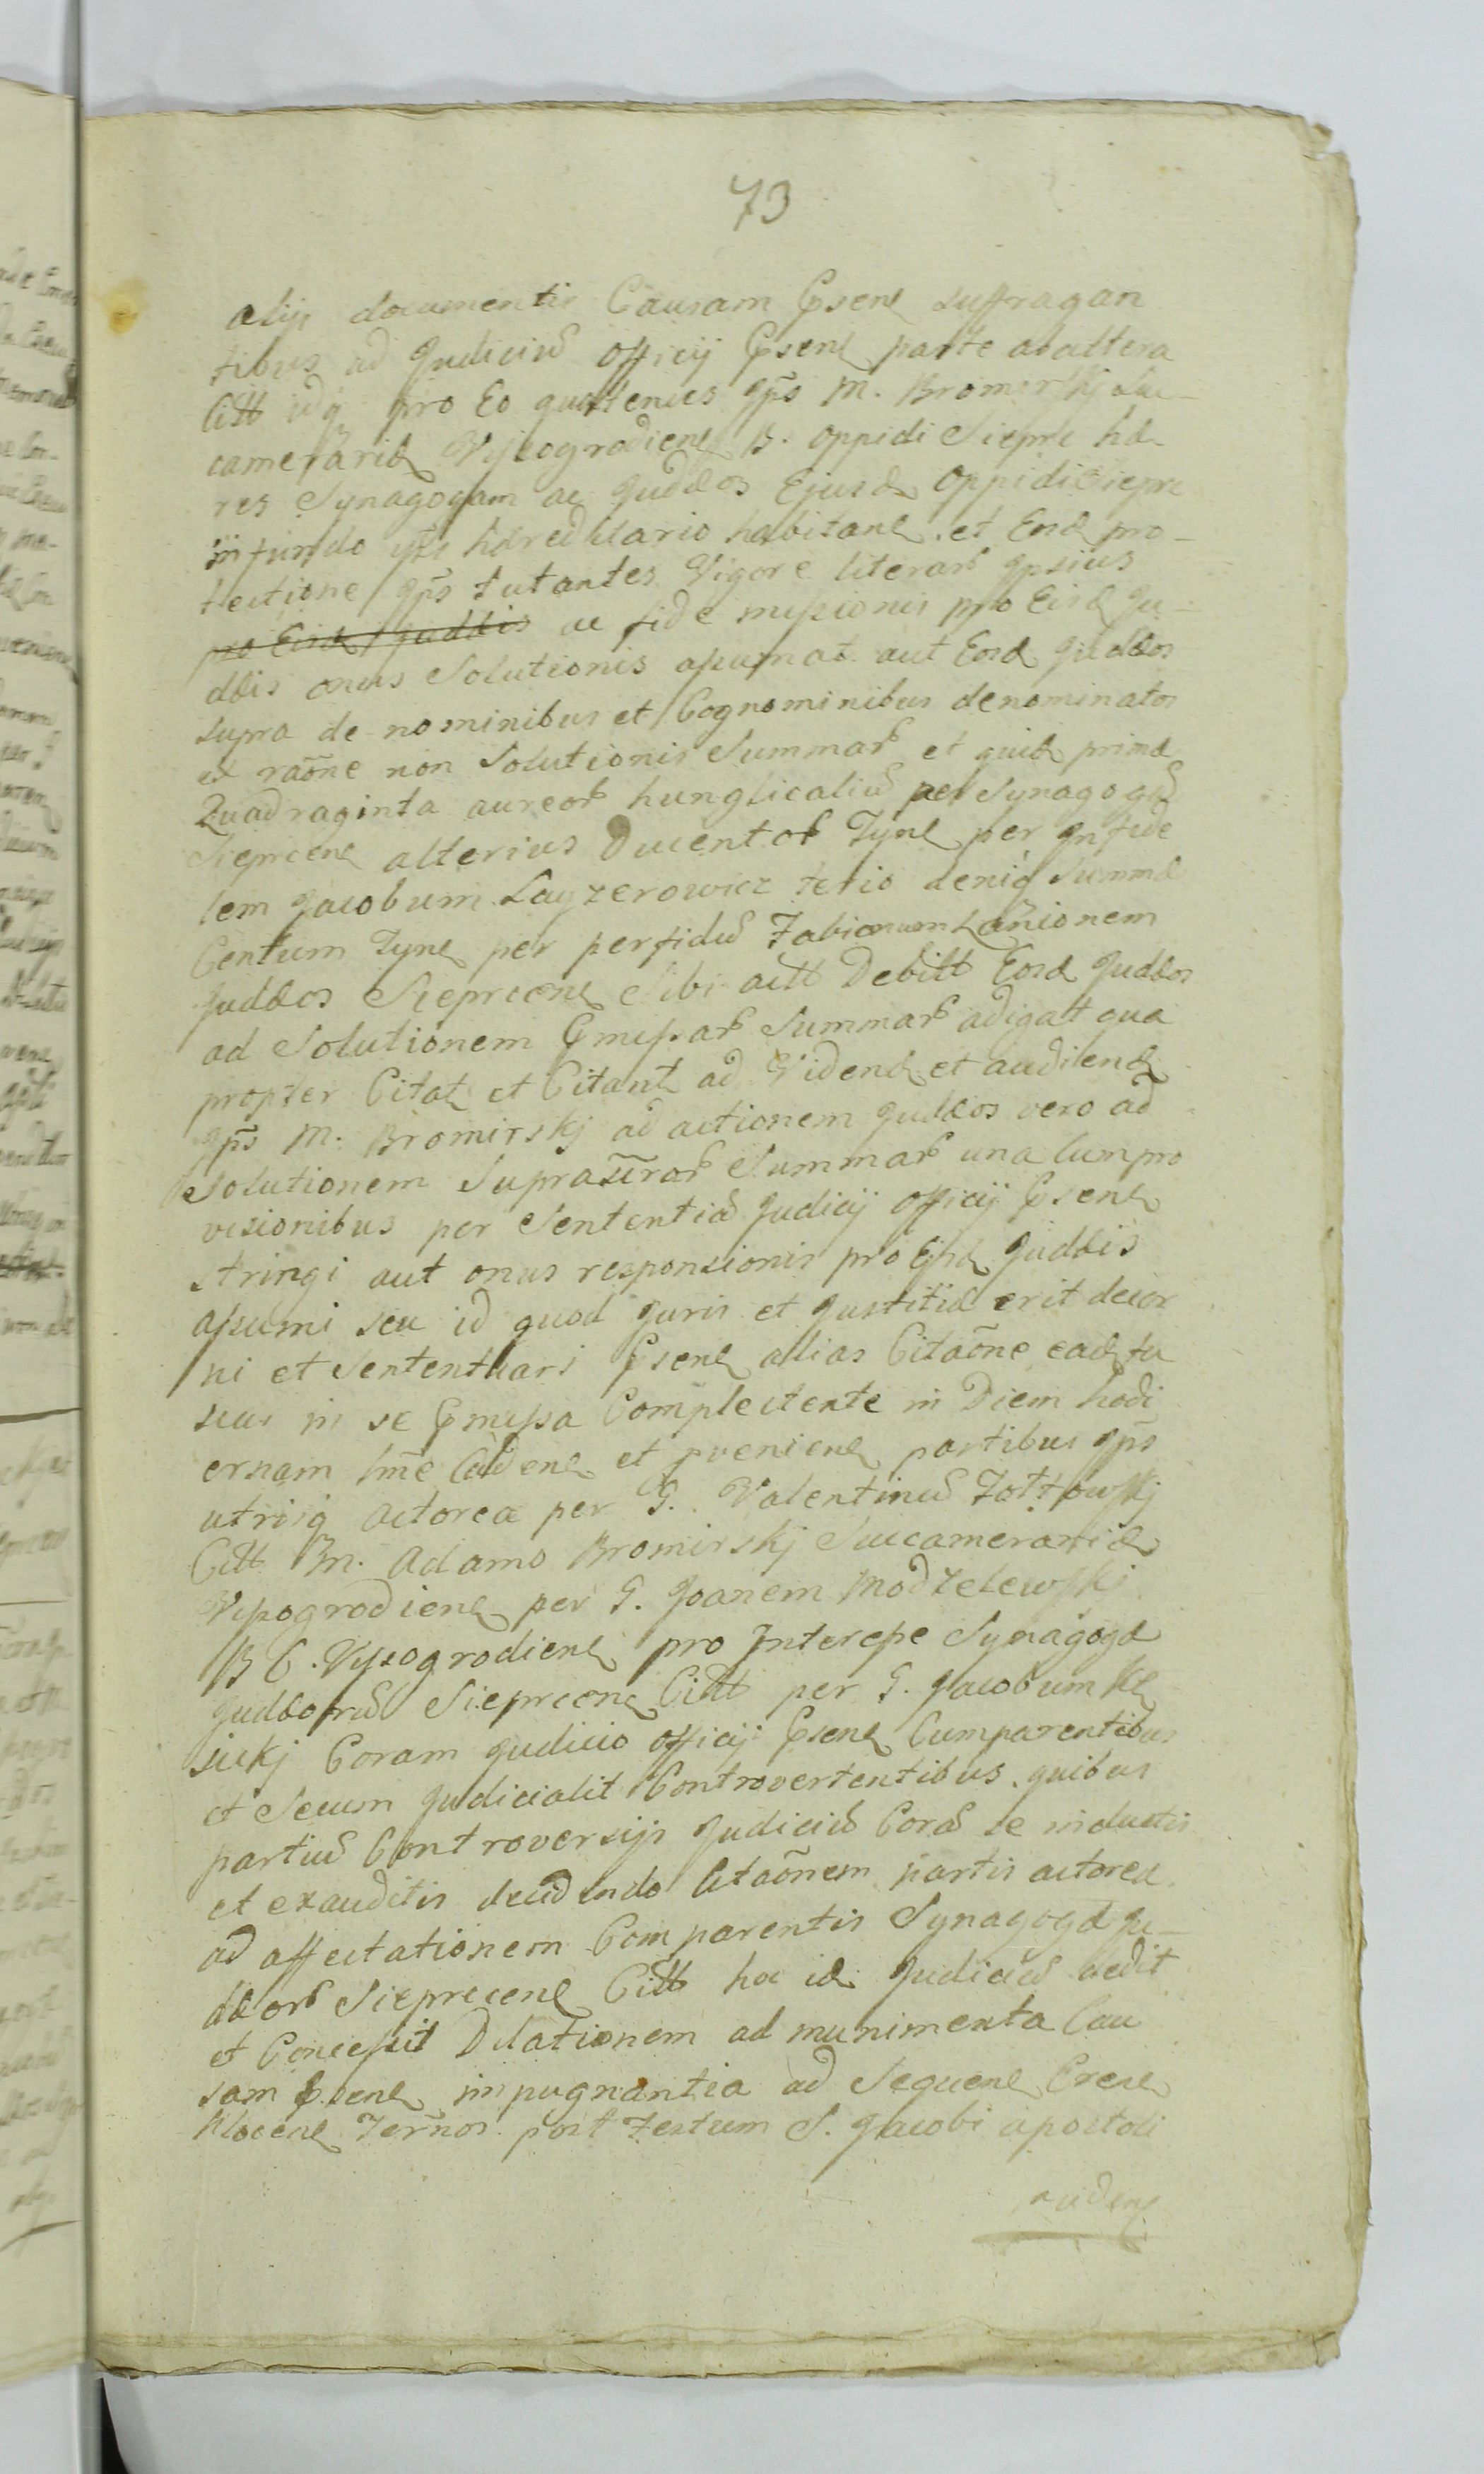 73
alijs documentis Causam Psene suffragan
tibus ad Judiciũ Officij Psene parte ab altera
Citt idq pro Eo quatenus Gñs M. Bromirskj Suc-
camerariæ Vysogrodiene B. oppidi Sieprc hæ-
res Synagogam ac Judæos Ejusd Oppidi Sieprc
in fundo hæreditario habitane et Eosd pro-
tectione tutantes Vigore literar ipsius
pro Eisd Judæis ac fide missionis pro Eisd Ju-
dæis onus Solutionis assumat aut Eosd Judæos
supra de nominibus et Cognominibus denominatos
ex raõne non Solutionis Summar et quid primæ
Quadraginta aureor hunglicaliũ per Synagogã
Sieprcene alterius Ducentor Tyne per infide
lem Jacobum Layzerowicz tertio deniq Summæ
Centum Tyne per perfidũ Fabianum Lanionem
Judæos Sieprcene Sibi actt Debitt Eosd Judæos
ad Solutionem Pmissar Summar adigat qua
propter Citat et Citant ad Vidend et audiend
Gñs M. Bromirskj ad actionem Judæos vero ad
Solutionem Suprascrar Summar una cum pro
visionibus per Sententiã Judicij Officij Psene
stringi aut onus responsionis pro Eisd Judæis
assumi seu id quod Juris et Justitiæ erit decer
ni et Sententiari Psene alias Citaõne ead fu
sius in se Pmissa Complectente in Diem hodi
ernam lme Cadene et pveniene partibus ipis
utrisq actorea per G. Valentinũ Zołtowskj
Citt M. Adamo Bromirskj Succamerariæ
Vyssogrodiene per G. Joanem Modzelewskj
B C. Vysogrodiene pro Interesse Synagogæ
Judæorũ Sieprcene Citt per G. Jacobum Kę
sickj Coram Judicio Officij Psene Cumparentibus
et Secum Judicialit Controvertentibus quibus
partiũ Controversijs Judiciũ Corã se inductis
et exauditis decidendo Citaõnem partis actorea
ad affectationem Comparentis Synagogæ Ju-
dæor Sieprcene Citt hoc id Judiciũ dedit
et Concessit Dilationem ad munimenta Cau
sam Psene impugnantia ad Sequene Crese
Plocene Terños post Festum S. Jacobi apostoli
cadene